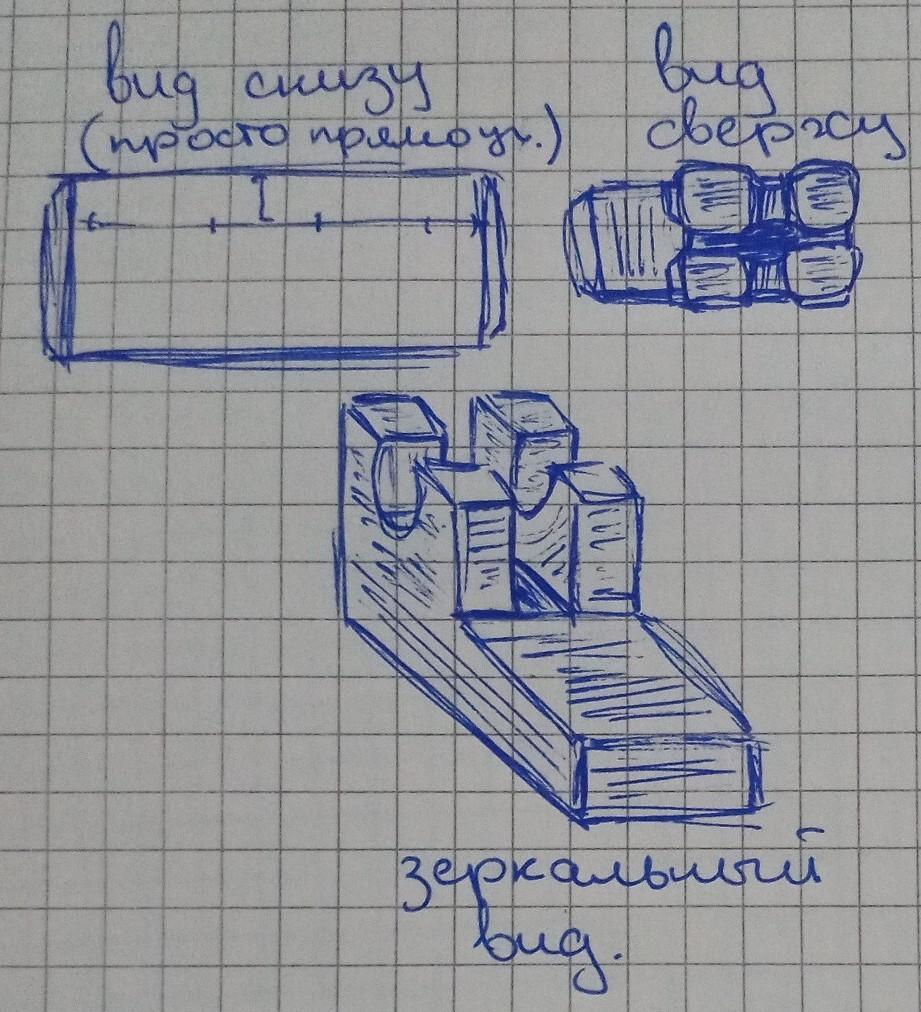 вид снизу
(просто прямоуг.)
вид
сверху
зеркальный
вид.